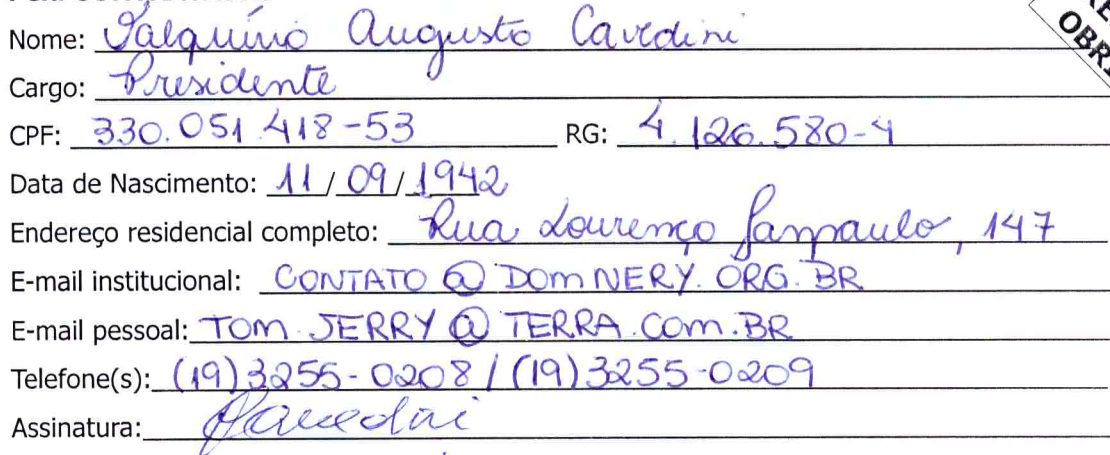 Nome: Valquírio Augusto Cavedini
Cargo: Presidente
CPF: 330.051.418-53 RG: 4.126.580-4
Data de Nascimento: 11/09/1942
Endereço residencial completo: Rua Lourenço Sampaulo, 147
E-mail institucional: CONTATO @ DOMNERY.ORG.BR
E-mail pessoal: TOM.JERRY @ TERRA.COM.BR
Telefone(s): (19)3255-0208 / (19)3255-0209
Assinatura: Cavedini